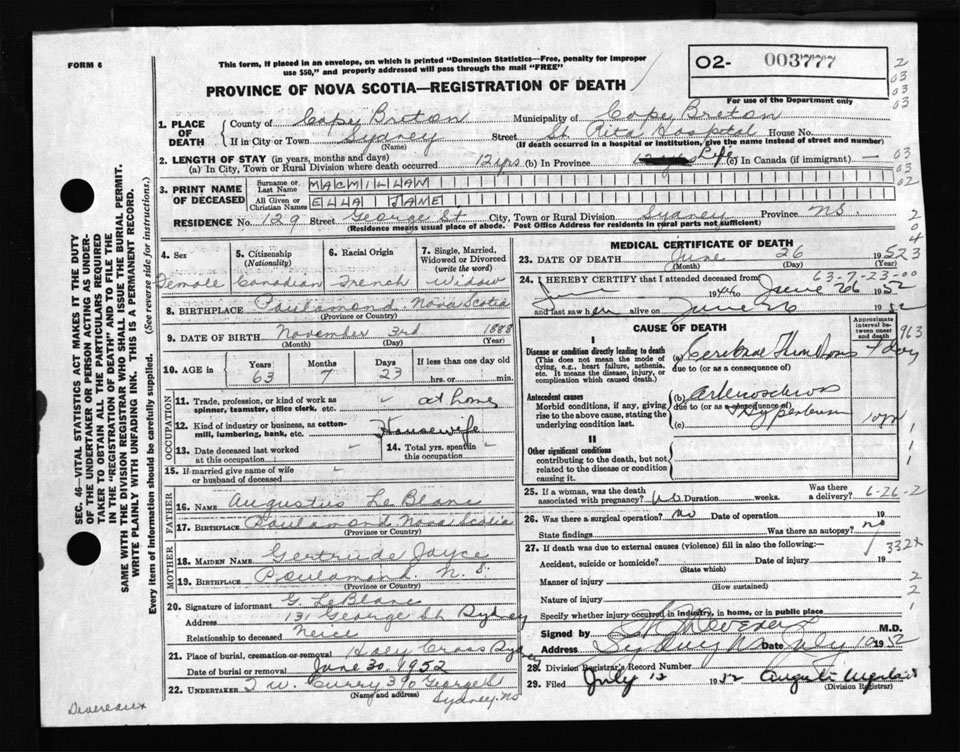 FORM 6
This form, if placed in an envelope, on which is printed "Dominion Statistics—Free, penalty for improper
use $50," and properly addressed will pass through the mail "FREE"
O2- 003777
For use of the Department only
PROVINCE OF NOVA SCOTIA—REGISTRATION OF DEATH
1. PLACE OF DEATH
County of Cape Breton Municipality of Cape Breton
If in City or Town Sydney Street St Rita Hospital House No.
(Name) (If death occurred in a hospital or institution, give the name instead of street and number)
2. LENGTH OF STAY (in years, months and days)
(a) In City, Town or Rural Division where death occurred 12 yrs (b) In Province Life (c) In Canada (if immigrant) —
3. PRINT NAME OF DECEASED
Surname or Last Name MACMILLAN
All Given or Christian Names ELLA JANE
RESIDENCE No. 129 Street George St City, Town or Rural Division Sydney Province NS.
(Residence means usual place of abode. Post Office Address for residents in rural parts not sufficient)
4. Sex
Female
5. Citizenship (Nationality)
Canadian
6. Racial Origin
French
7. Single, Married, Widowed or Divorced (write the word)
Widow
8. BIRTHPLACE Nova Scotia
(Province or Country)
9. DATE OF BIRTH November 3rd 1888
(Month) (Day) (Year)
10. AGE in Years Months Days If less than one day old
63 7 23 hrs. or min.
OCCUPATION
11. Trade, profession, or kind of work as spinner, teamster, office clerk, etc. at home
12. Kind of industry or business, as cotton-mill, lumbering, bank, etc. Housewife
13. Date deceased last worked at this occupation
14. Total yrs. spent in this occupation
15. If married give name of wife or husband of deceased
FATHER
16. NAME Augustus Le Blanc
17. BIRTHPLACE Nova Scotia
(Province or Country)
MOTHER
18. MAIDEN NAME Gertrude Joyce
19. BIRTHPLACE N. S.
(Province or Country)
20. Signature of informant G. Le Blanc
Address 131 George St Sydney
Relationship to deceased Neice
21. Place of burial, cremation or removal Holy Cross Sydney
Date of burial or removal June 30, 1952
22. UNDERTAKER T W. Curry 390 George St
(Name and address) Sydney. NS
MEDICAL CERTIFICATE OF DEATH
23. DATE OF DEATH June 26 1952
(Month) (Day) (Year)
63-7-23-00
24. I HEREBY CERTIFY that I attended deceased from
June 19 to June 26 1952
and last saw her alive on June 26 1952
CAUSE OF DEATH
Approximate interval between onset and death
I
Disease or condition directly leading to death (a) Cerebral
(This does not mean the mode of dying, e.g., heart failure, asthenia, etc. It means the disease, injury, or complication which caused death.)
due to (or as a consequence of)
Antecedent causes (b)
Morbid conditions, if any, giving rise to the above cause, stating the underlying condition last.
due to (or as a consequence of)
(c)
II
Other significant conditions
contributing to the death, but not related to the disease or condition causing it.
25. If a woman, was the death associated with pregnancy? No Duration weeks. Was there a delivery?
6-26-2
26. Was there a surgical operation? No Date of operation 19
State findings Was there an autopsy? no
27. If death was due to external causes (violence) fill in also the following:—
332x
Accident, suicide or homicide? Date of injury 19
(State which)
Manner of injury
(How sustained)
Nature of injury
Specify whether injury occurred in industry, in home, or in public place
Signed by M.D.
Address Sydney NS Date July 10 1952
28. Division Registrar's Record Number
29. Filed July 12 1952
(Division Registrar)
SEC. 46—VITAL STATISTICS ACT MAKES IT THE DUTY
OF THE UNDERTAKER OR PERSON ACTING AS UNDER-
TAKER TO OBTAIN ALL THE PARTICULARS REQUIRED
IN THE "REGISTRATION OF DEATH" AND TO FILE THE
SAME WITH THE DIVISION REGISTRAR WHO SHALL ISSUE THE BURIAL PERMIT.
WRITE PLAINLY WITH UNFADING INK. THIS IS A PERMANENT RECORD.
Every item of information should be carefully supplied. (See reverse side for instructions.)
Devereaux